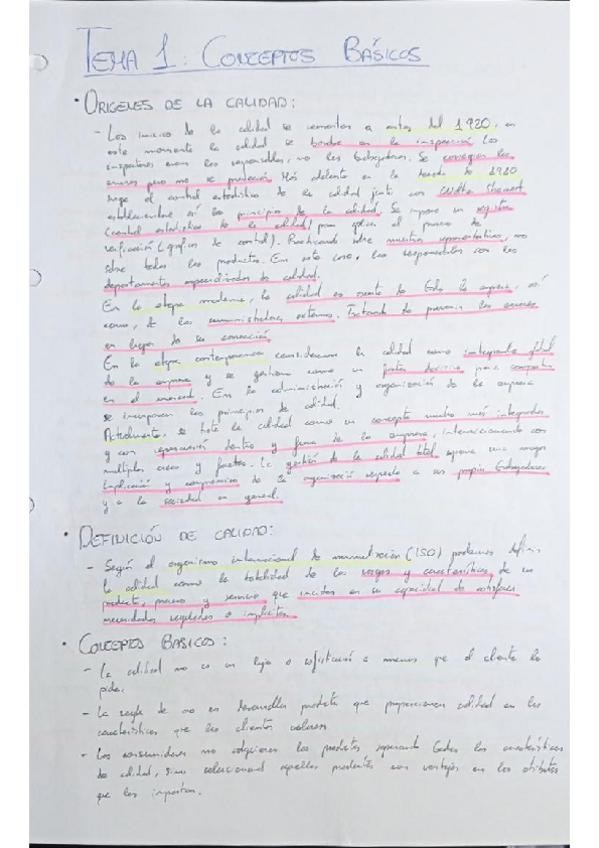 TEMA 1: CONCEPTOS BÁSICOS
• ORIGENES DE LA CALIDAD:
- Los inicios de la calidad se remontan a antes del 1920, en
este momento la calidad se basaba en la inspección. Los
inspectores eran los responsables, no los trabajadores. Se conseguían los
errores pero no se prevenían. Más adelante en la década de 1920
surge el control estadístico de la calidad junto con Walter Shewart
estableciendose así los principios de la calidad. Se impone un
(control estadístico de la calidad) para aplicar el proceso de
verificación (graficos de control). Practicando sobre muestras representativas, no
sobre todos los productos. En este caso, los responsables son los
departamentos especializados de calidad.
En la etapa moderna, la calidad es cuenta de toda la empresa, así
como, de los suministradores externos. Tratando de prevenir los errores
en lugar de su corrección
En la etapa contemporanea consideramos la calidad como integrante global
de la empresa y se gestiona como un factor decisivo para competir
en el mercado. En la administración y organización de la empresa
se incorporan los principios de calidad.
Actualmente, se trata la calidad como un concepto mucho más integrador
y con repercusión dentro y fuera de la empresa, interaccionando con
multiples areas y factores. La gestión de la calidad total supone una mayor
implicación y compromiso de la organización respecto a sus propios trabajadores
y a la sociedad en general.
• DEFINICIÓN DE CALIDAD:
- Según el organismo internacional de normalización (ISO) podemos definir
la calidad como la totalidad de los rasgos y características de un
producto, proceso y servicio que inciden en su capacidad de satisfacer
necesidades reguladas o implicitas.
• CONCEPTOS BASICOS:
- La calidad no es un lujo o sofisticació a menos que el cliente lo
pida.
- La regla de oro en desarrollar productos que proporcionen calidad en las
características que los clientes valoran
- Los consumidores no adquieren los productos separando todas las características
de calidad, sino seleccionand aquellos productos con ventajas en los atributos
que les importan.